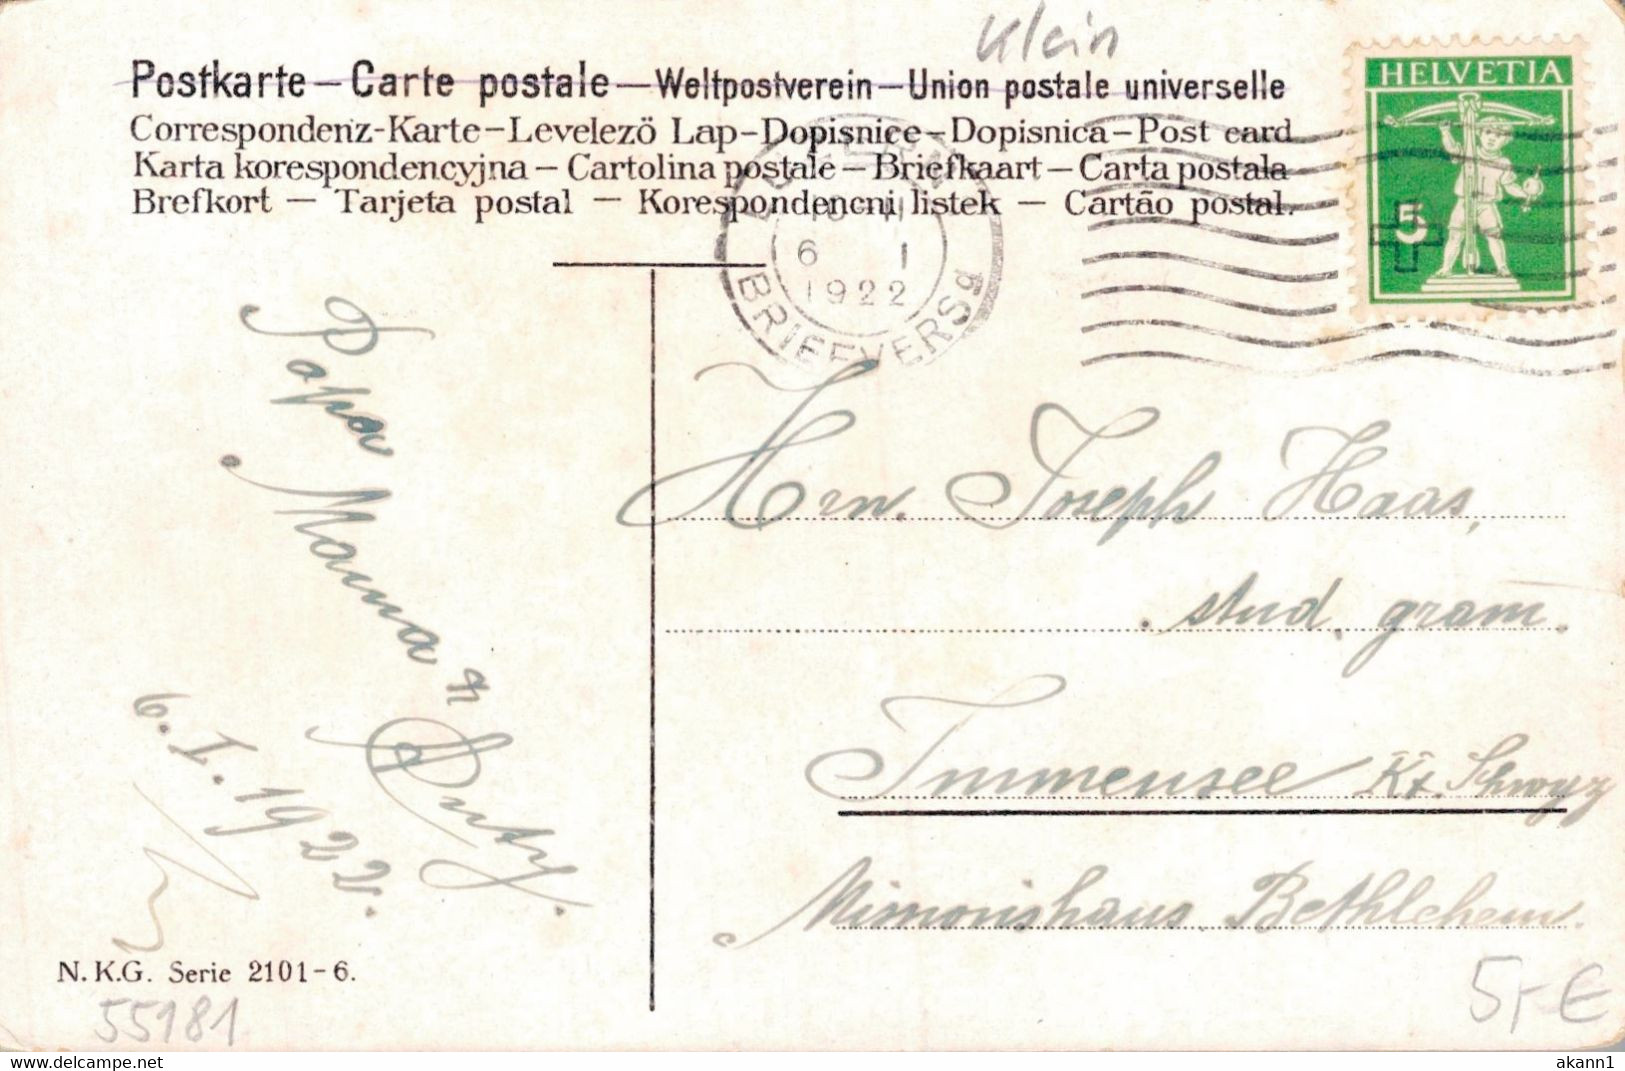 Klein
Postkarte – Carte postale – Weltpostverein – Union postale universelle
Correspondenz-Karte – Levelező Lap – Dopisnice – Dopisnica – Post card
Karta korespondencyjna – Cartolina postale – Briefkaart – Carta postala
Brefkort — Tarjeta postal — Korespondencni listek — Cartão postal.
HELVETIA
5
6 I
1922
BRIEFVERSd
Papa
Mama &
6. I. 1922.
Hrn. Joseph Haas,
stud. gram.
Immensee Kt. Schwyz
Missionshaus Bethlehem.
N.K.G. Serie 2101-6.
55181
5,-€
delcampe.net
akann1